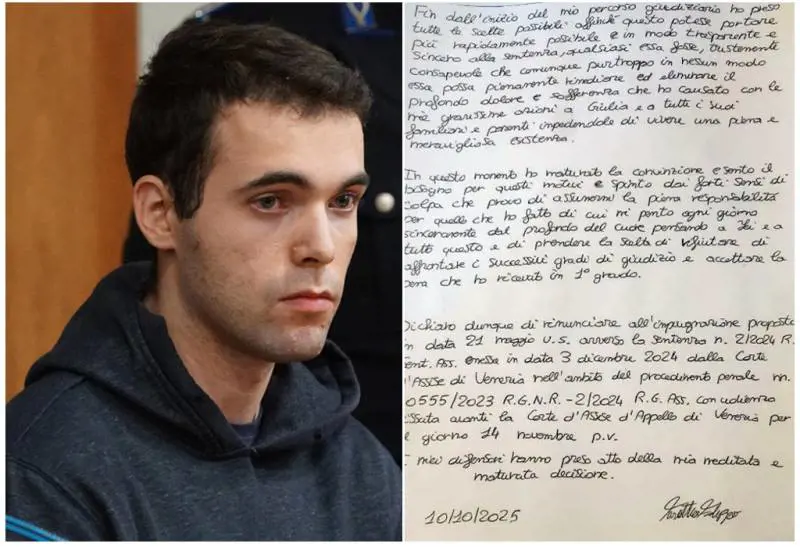 Fin dall'inizio del mio percorso giudiziario ho preso
tutte le scelte possibili affinché questo potesse portare
più rapidamente possibile e in modo trasparente e
sincero alla sentenza, qualsiasi essa fosse, tristemente
consapevole che comunque purtroppo in nessun modo
essa possa pienamente rimediare ed eliminare il
profondo dolore e sofferenza che ho causato con le
mie gravissime azioni a Giulia e a tutti i suoi
familiari e parenti impedendole di vivere una piena e
meravigliosa esistenza.
In questo momento ho maturato la convinzione e sento il
bisogno per questi motivi e spinto dai forti sensi di
colpa che provo di assumermi la piena responsabilità
per quello che ho fatto di cui mi pento ogni giorno
sinceramente dal profondo del cuore pensando a lei e a
tutto questo e di prendere la scelta di rifiutare di
affrontare i successivi gradi di giudizio e accettare la
pena che ho ricevuto in 1° grado.
Dichiaro dunque di rinunciare all'impugnazione proposta
in data 21 maggio u.s. avverso la sentenza n. 2/2024 R.
Sent. Ass. emessa in data 3 dicembre 2024 dalla Corte
d'Assise di Venezia nell'ambito del procedimento penale nn.
0555/2023 R.G.N.R. -2/2024 R.G. Ass. con udienza
fissata avanti la Corte d'Assise d'Appello di Venezia per
il giorno 14 novembre p.v.
I miei difensori hanno preso atto della mia meditata e
maturata decisione.
10/10/2025